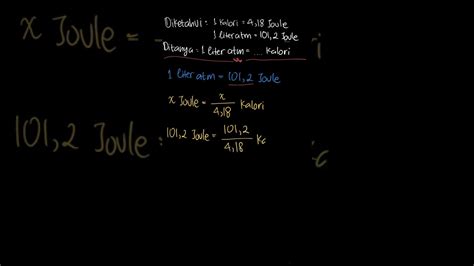 Diketahui : 1 kalori = 4,18 Joule
1 liter atm = 101,2 Joule
Ditanya : 1 liter atm = .... kalori
1 liter atm = 101,2 Joule
x Joule = x/4,18 kalori
101,2 Joule = 101,2/4,18 Ka
x Joule =
101,2 Joule :